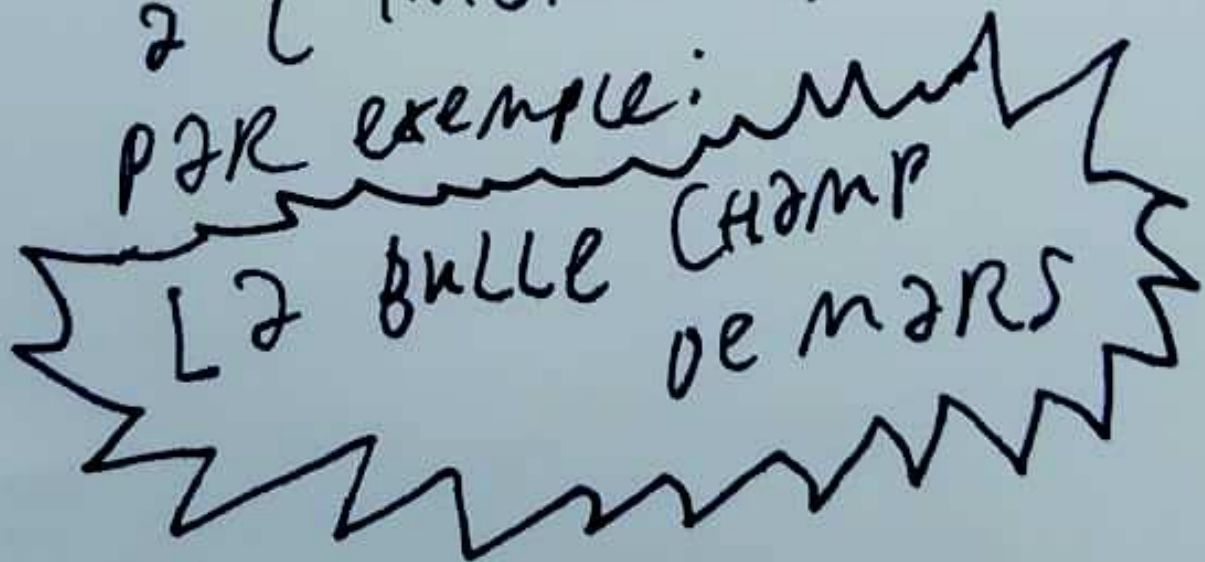 à l'
par exemple:
La Bulle Champ
de Mars